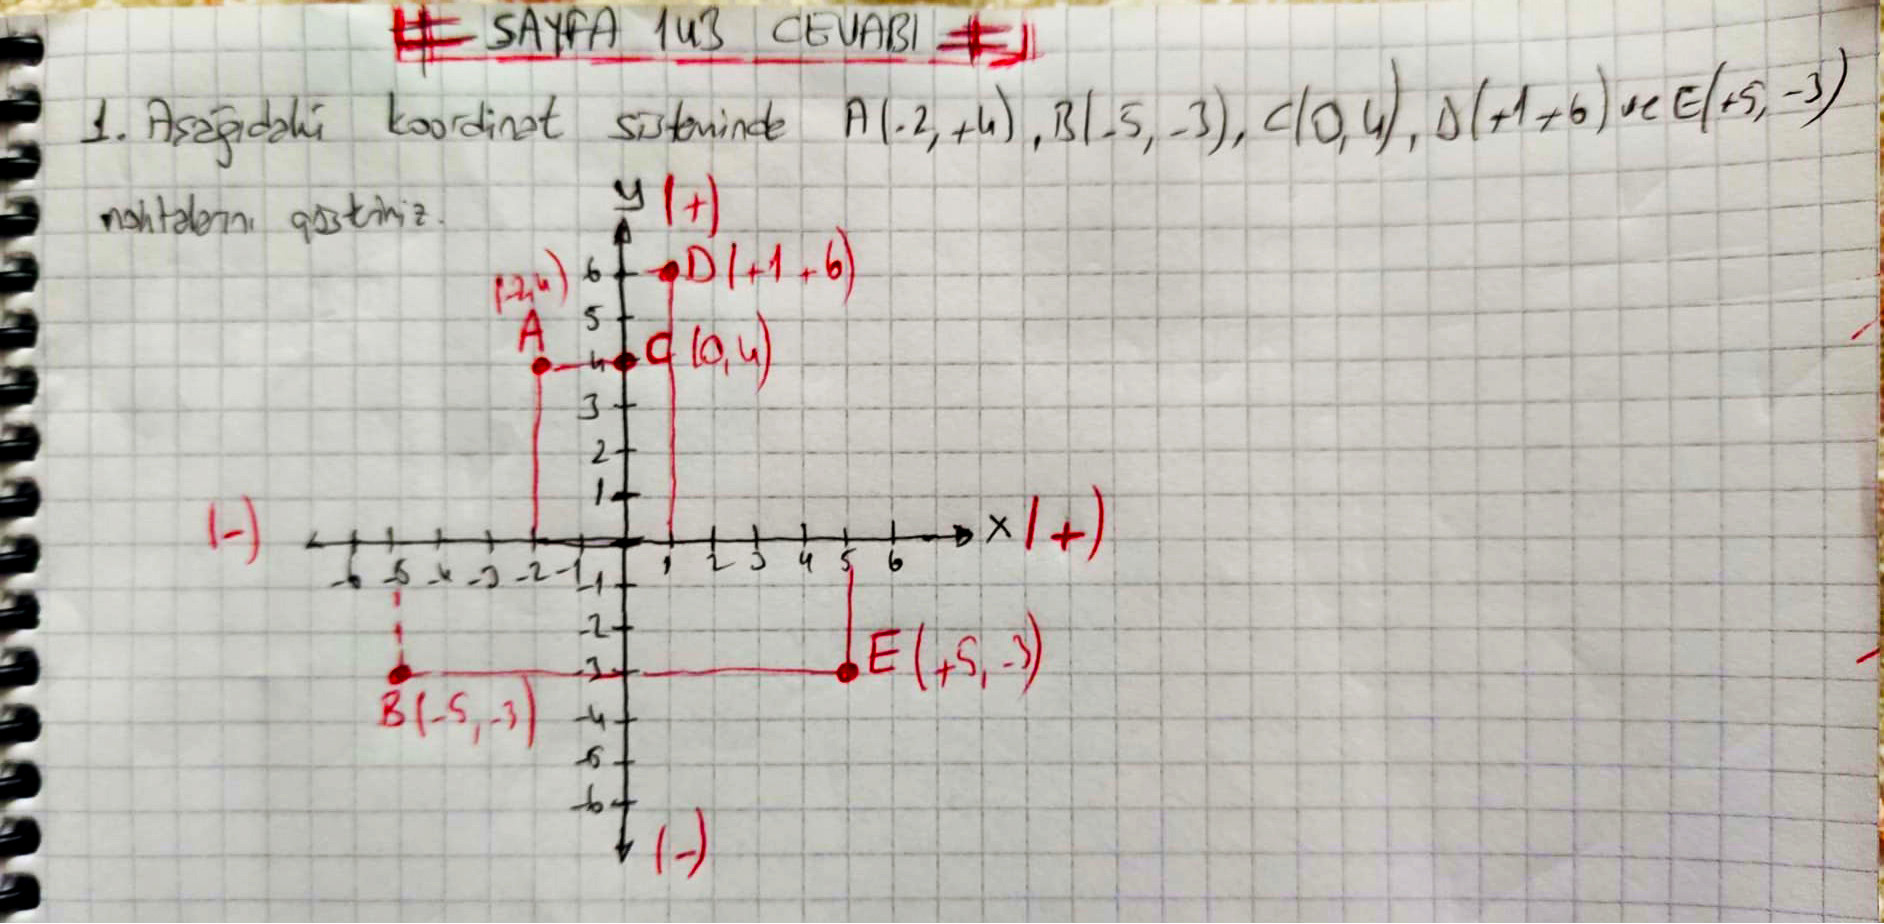 SAYFA 143 CEVABI
1. Aşağıdaki koordinat sisteminde A(-2,+4), B(-5,-3), C(0,4), D(+1+6) ve E(+5,-3)
noktalarını gösteriniz.
y (+)
6 D(+1+6)
(-2,4)
5
A
4 C (0,4)
3
2
1
(-) x (+)
-6 -5 -4 -3 -2 -1 1 2 3 4 5 6
-1
-2
E(+5,-3)
-3
B(-5,-3)
-4
-5
-6
(-)